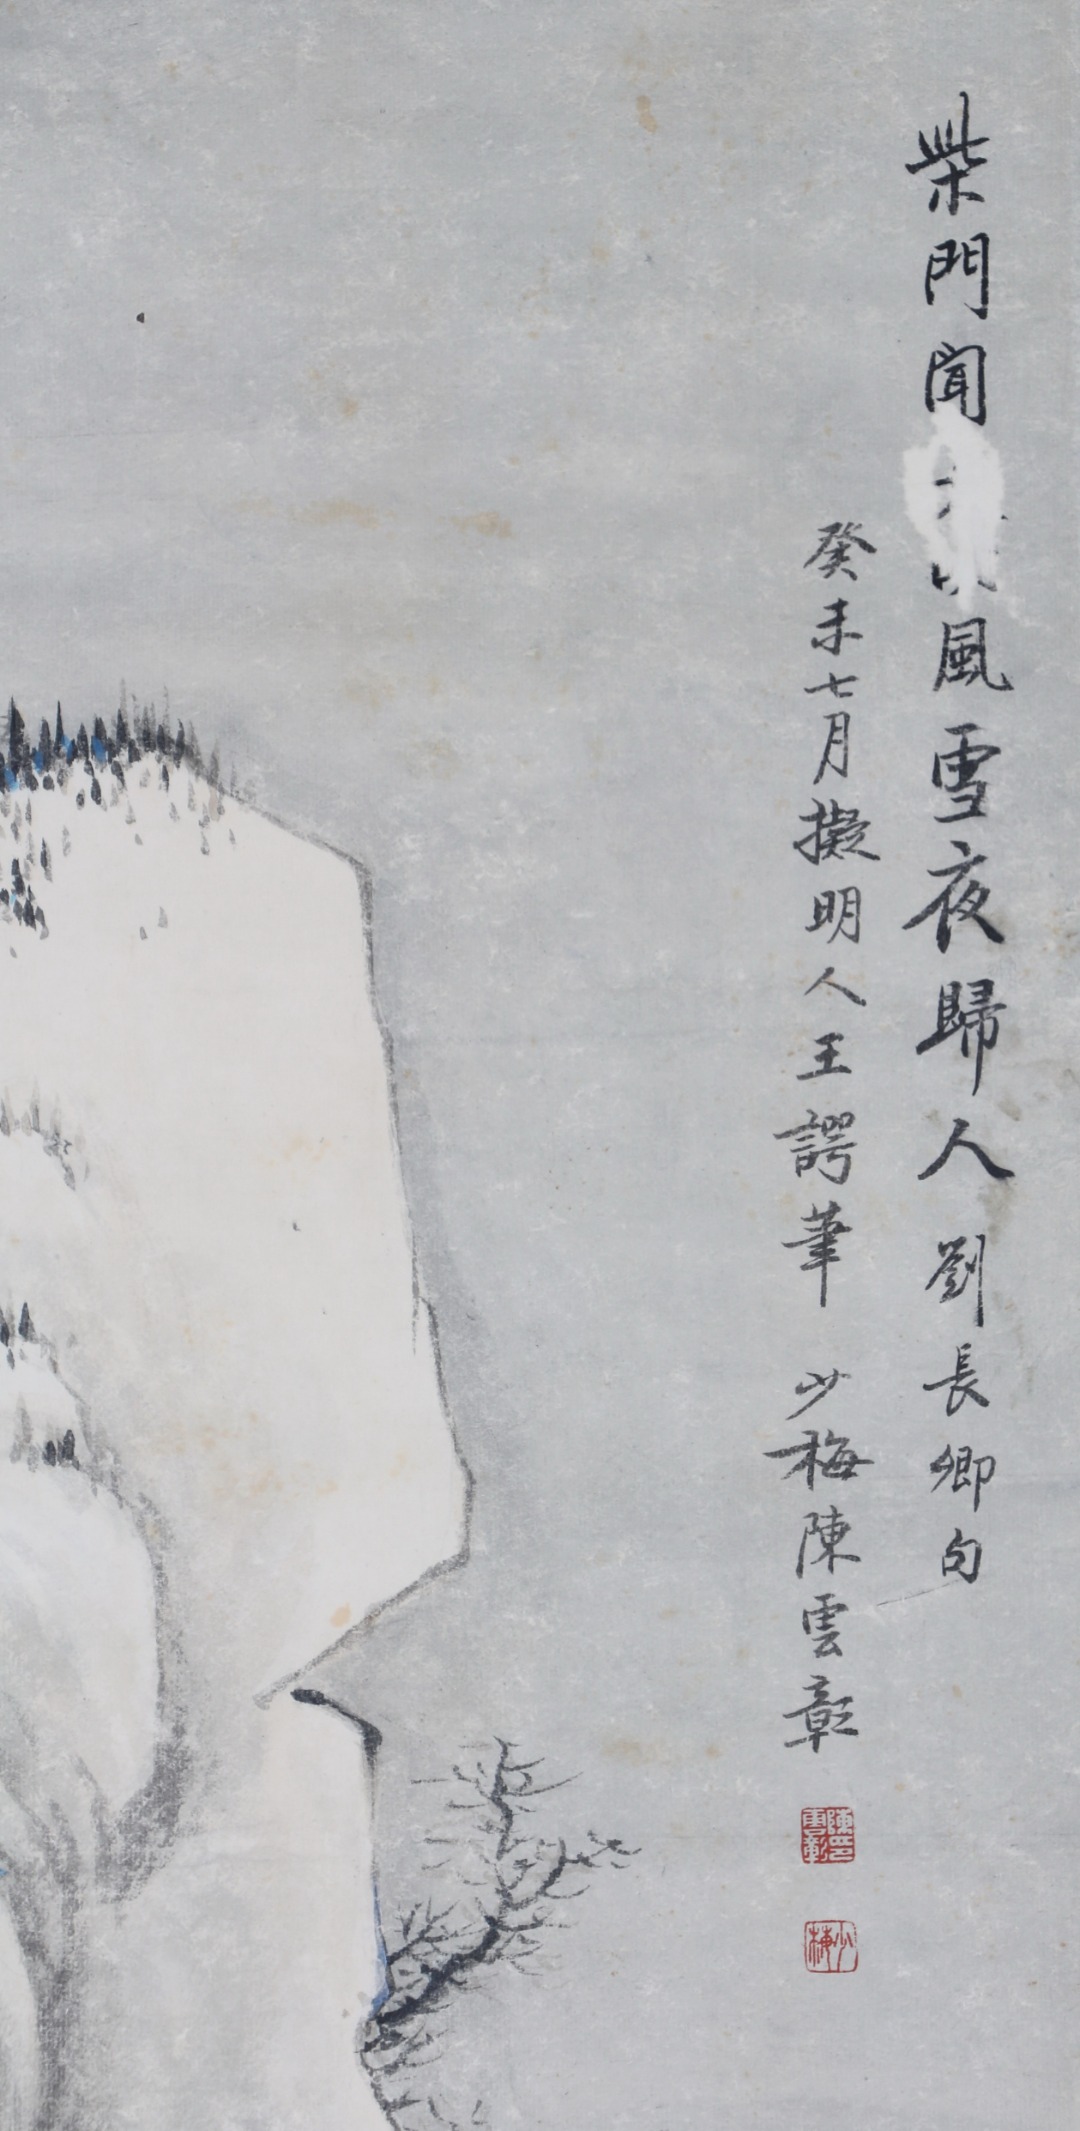 柴門聞風雪夜歸人劉長卿句
癸未七月擬明人王諤筆 少梅陳雲彰
陳雲彰印
少梅